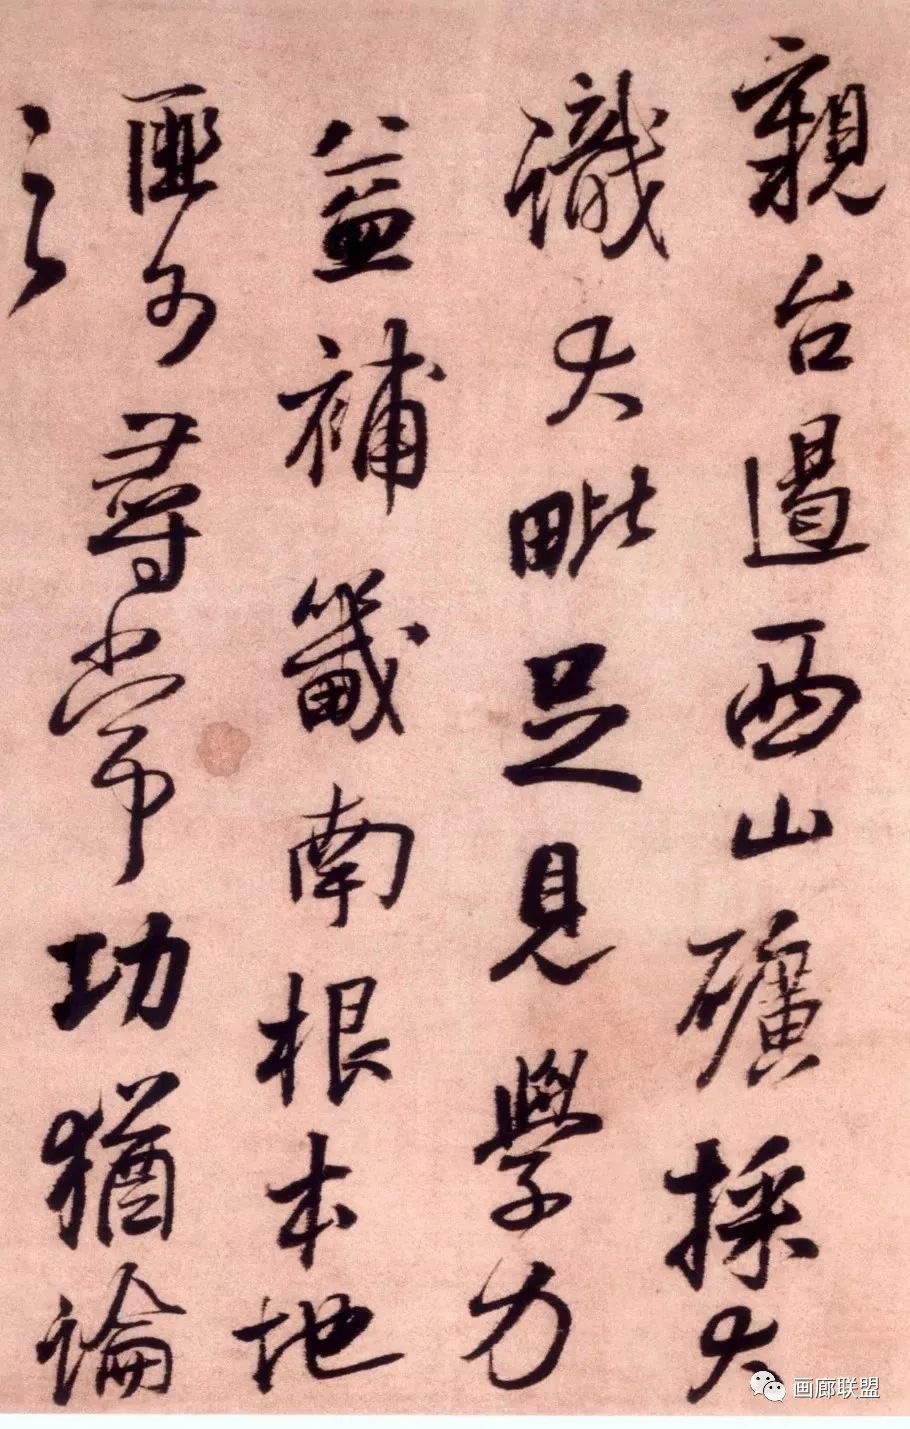 親台遏西山礦採大
識大毗足見學力
益補畿南根本地
匪尋常功猶論
之
画廊联盟